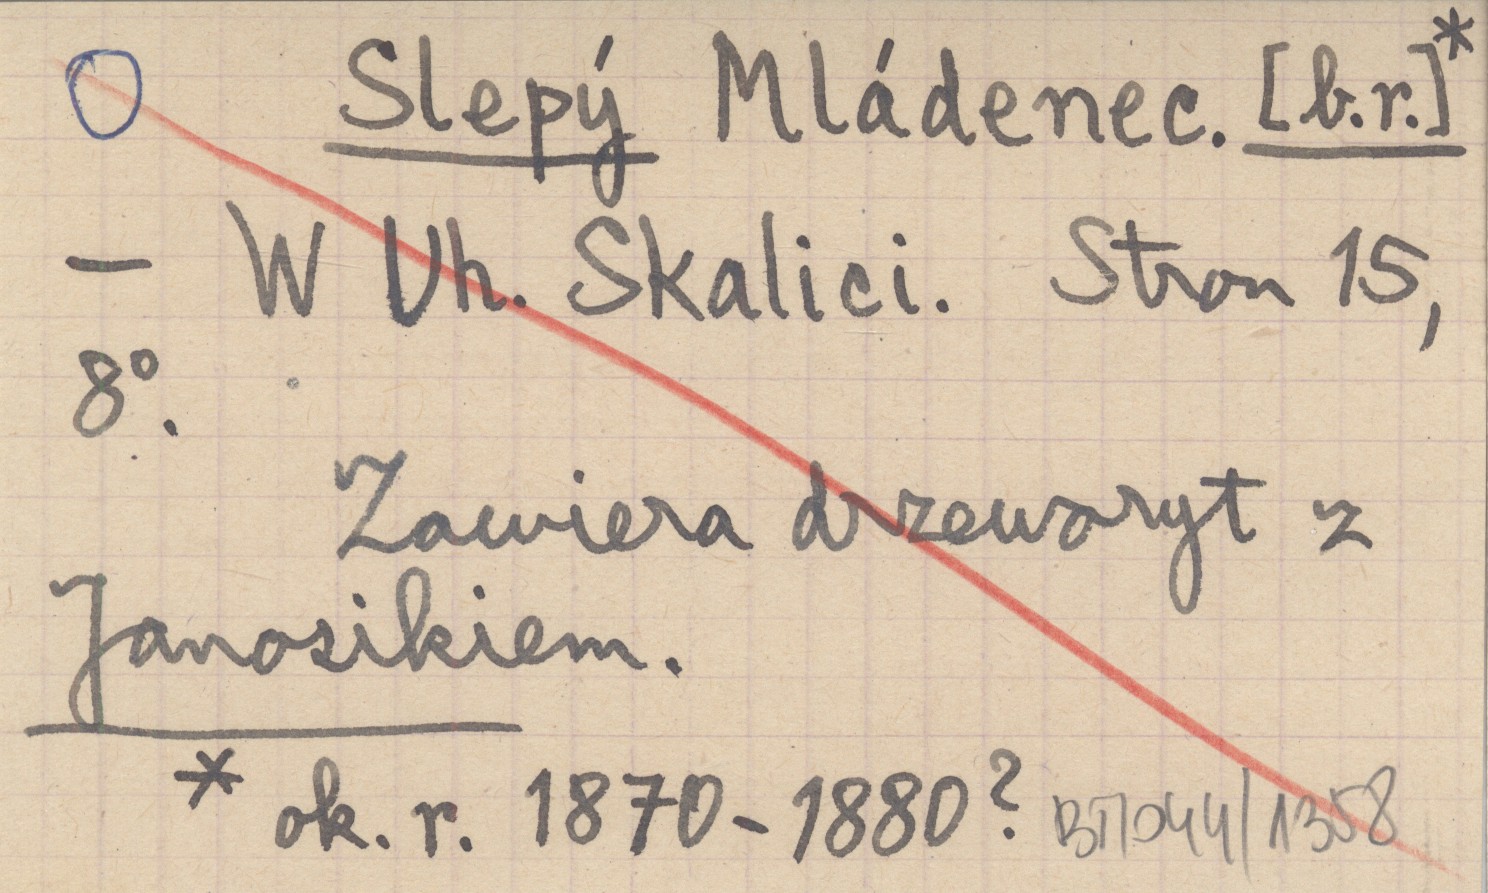 O Slepý Mládenec. [b.r.]*
— W Uh. Skalici. Stron 15,
8°.
Zawiera drzeworyt z
Janosikiem.
* ok. r. 1870-1880? /1358